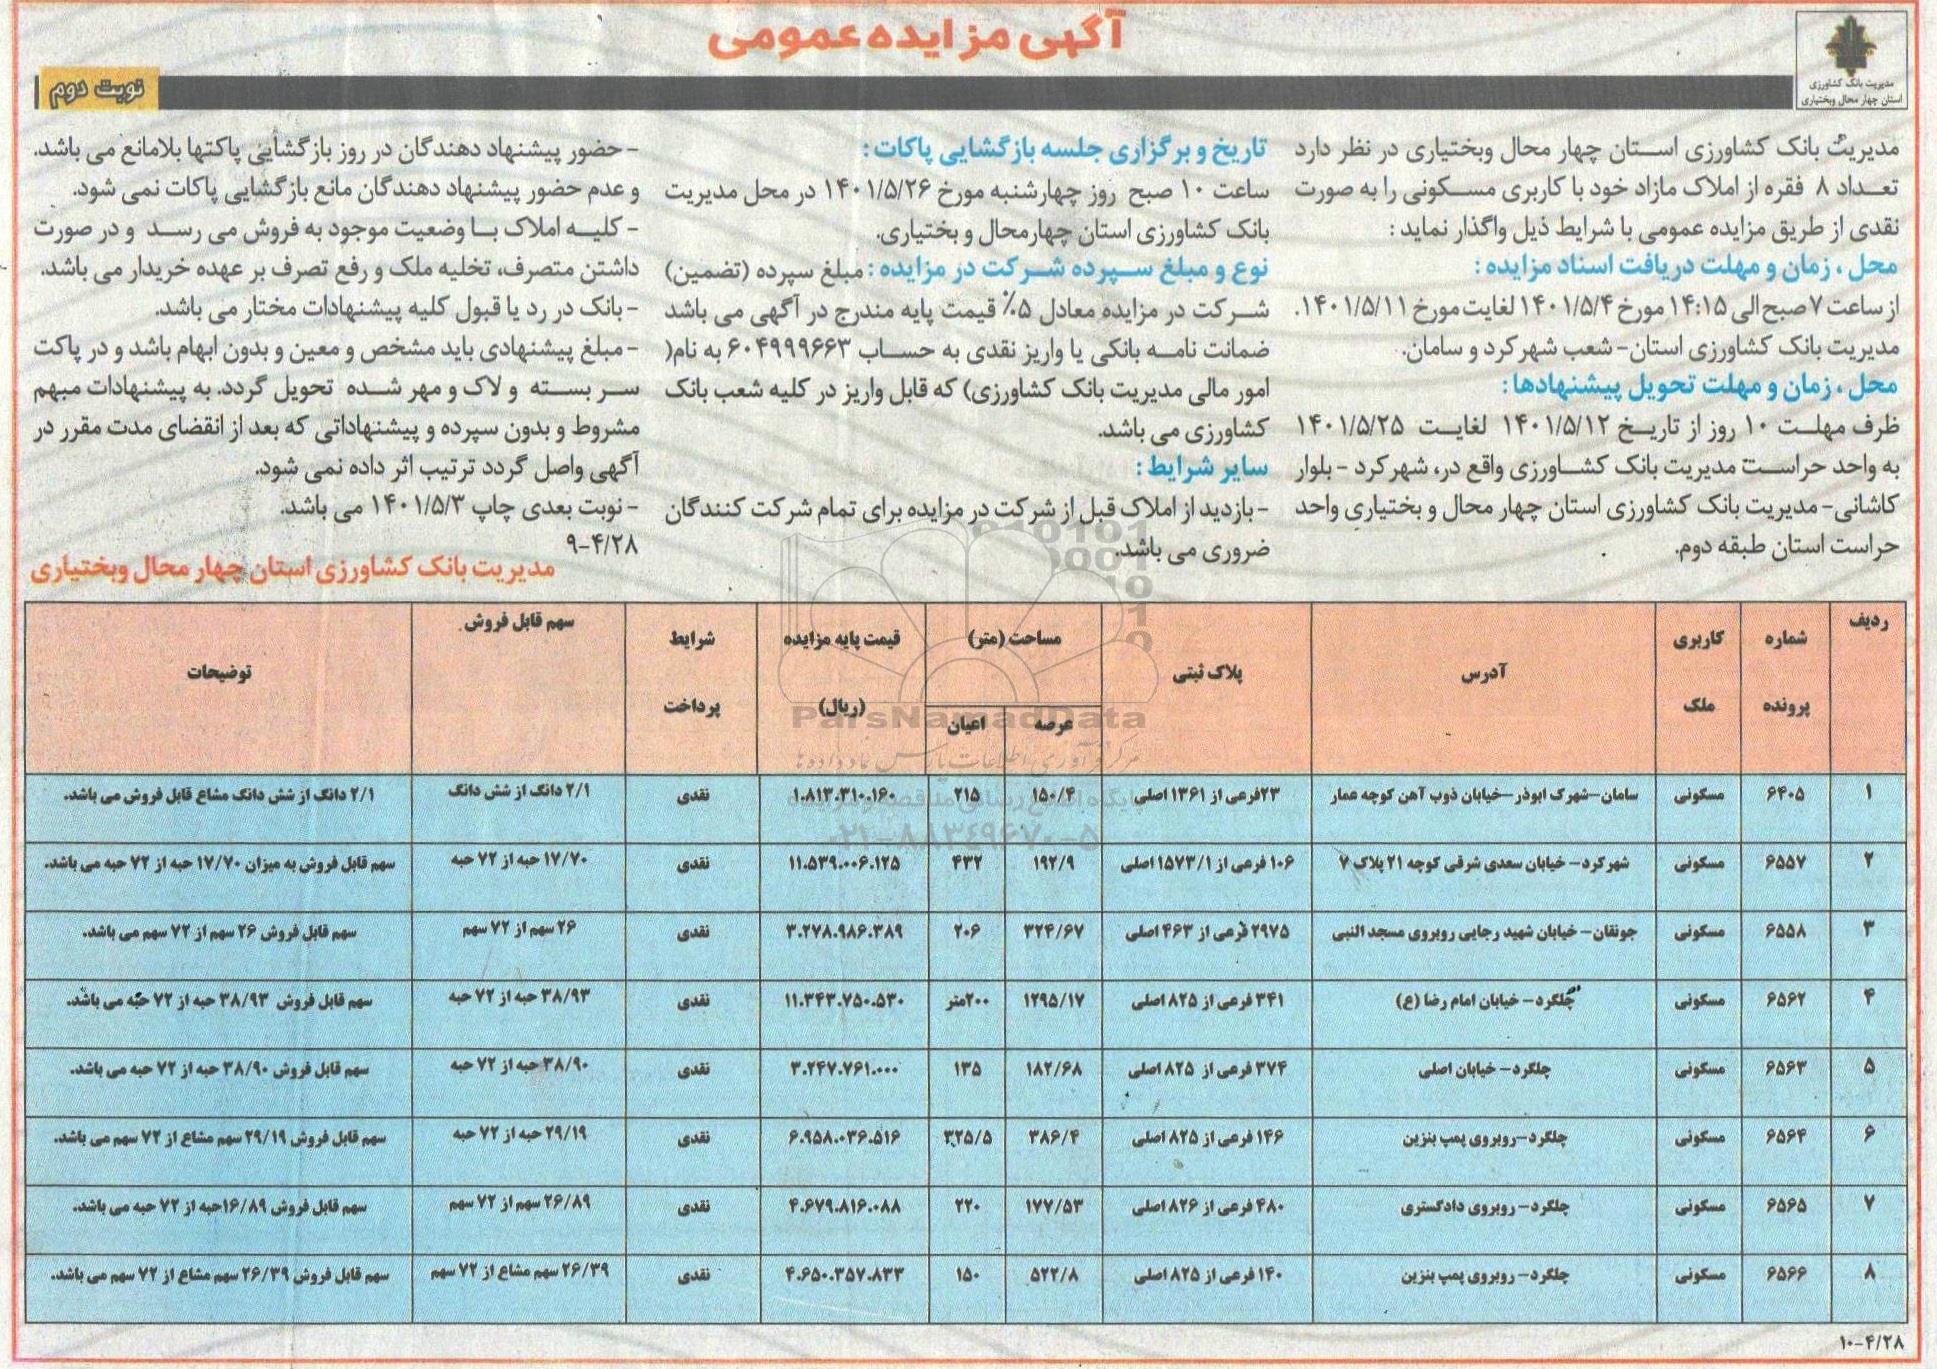 آگهی مزایده عمومی
مدیریت بانک کشاورزی
استان چهار محال وبختیاری
نوبت دوم
مدیریت بانک کشاورزی استان چهار محال وبختیاری در نظر دارد
تعداد ۸ فقره از املاک مازاد خود با کاربری مسکونی را به صورت
نقدی از طریق مزایده عمومی با شرایط ذیل واگذار نماید :
محل ، زمان و مهلت دریافت اسناد مزایده :
از ساعت ۷ صبح الی ۱۴:۱۵ مورخ ۱۴۰۱/۵/۴ لغایت مورخ ۱۴۰۱/۵/۱۱.
مدیریت بانک کشاورزی استان- شعب شهرکرد و سامان.
محل ، زمان و مهلت تحویل پیشنهادها :
ظرف مهلت ۱۰ روز از تاریخ ۱۴۰۱/۵/۱۲ لغایت ۱۴۰۱/۵/۲۵
به واحد حراست مدیریت بانک کشاورزی واقع در، شهرکرد - بلوار
کاشانی- مدیریت بانک کشاورزی استان چهار محال و بختیاری واحد
حراست استان طبقه دوم.
تاریخ و برگزاری جلسه بازگشایی پاکات :
ساعت ۱۰ صبح روز چهارشنبه مورخ ۱۴۰۱/۵/۲۶ در محل مدیریت
بانک کشاورزی استان چهارمحال و بختیاری.
نوع و مبلغ سپرده شرکت در مزایده : مبلغ سپرده (تضمین)
شرکت در مزایده معادل ۵٪ قیمت پایه مندرج در آگهی می باشد
ضمانت نامه بانکی یا واریز نقدی به حساب ۶۰۴۹۹۹۶۶۳ به نام(
امور مالی مدیریت بانک کشاورزی) که قابل واریز در کلیه شعب بانک
کشاورزی می باشد.
سایر شرایط :
- بازدید از املاک قبل از شرکت در مزایده برای تمام شرکت کنندگان
ضروری می باشد.
- حضور پیشنهاد دهندگان در روز بازگشایی پاکتها بلامانع می باشد.
و عدم حضور پیشنهاد دهندگان مانع بازگشایی پاکات نمی شود.
- کلیه املاک با وضعیت موجود به فروش می رسد و در صورت
داشتن متصرف، تخلیه ملک و رفع تصرف بر عهده خریدار می باشد.
- بانک در رد یا قبول کلیه پیشنهادات مختار می باشد.
- مبلغ پیشنهادی باید مشخص و معین و بدون ابهام باشد و در پاکت
سر بسته و لاک و مهر شده تحویل گردد. به پیشنهادات مبهم
مشروط و بدون سپرده و پیشنهاداتی که بعد از انقضای مدت مقرر در
آگهی واصل گردد ترتیب اثر داده نمی شود.
- نوبت بعدی چاپ ۱۴۰۱/۵/۳ می باشد.
۹-۴/۲۸
مدیریت بانک کشاورزی استان چهار محال وبختیاری
ردیف شماره پرونده کاربری ملک آدرس پلاک ثبتی مساحت (متر) عرصه اعیان قیمت پایه مزایده (ریال) شرایط پرداخت سهم قابل فروش توضیحات
۱ ۶۴۰۵ مسکونی سامان-شهرک ابوذر-خیابان ذوب آهن کوچه عمار ۲۳فرعی از ۱۳۶۱ اصلی ۱۵۰/۴ ۲۱۵ ۱.۸۱۳.۳۱۰.۱۶۰ نقدی ۲/۱ دانگ از شش دانگ ۲/۱ دانگ از شش دانگ مشاع قابل فروش می باشد.
۲ ۶۵۵۷ مسکونی شهرکرد- خیابان سعدی شرقی کوچه ۲۱ پلاک ۷ ۱۰۶ فرعی از ۱۵۷۳/۱ اصلی ۱۹۲/۹ ۴۳۲ ۱۱.۵۳۹.۰۰۶.۱۲۵ نقدی ۱۷/۷۰ حبه از ۷۲ حبه سهم قابل فروش به میزان ۱۷/۷۰ حبه از ۷۲ حبه می باشد.
۳ ۶۵۵۸ مسکونی جونقان- خیابان شهید رجایی روبروی مسجد النبی ۲۹۷۵ فرعی از ۴۶۳ اصلی ۳۲۴/۶۷ ۲۰۶ ۳.۲۷۸.۹۸۶.۳۸۹ نقدی ۲۶ سهم از ۷۲ سهم سهم قابل فروش ۲۶ سهم از ۷۲ سهم می باشد.
۴ ۶۵۶۲ مسکونی چلگرد- خیابان امام رضا (ع) ۳۴۱ فرعی از ۸۲۵ اصلی ۱۲۹۵/۱۷ ۲۰۰متر ۱۱.۳۴۳.۷۵۰.۵۳۰ نقدی ۳۸/۹۳ حبه از ۷۲ حبه سهم قابل فروش ۳۸/۹۳ حبه از ۷۲ حبه می باشد.
۵ ۶۵۶۳ مسکونی چلگرد- خیابان اصلی ۳۷۴ فرعی از ۸۲۵ اصلی ۱۸۲/۶۸ ۱۳۵ ۳.۲۴۷.۷۶۱.۰۰۰ نقدی ۳۸/۹۰ حبه از ۷۲ حبه سهم قابل فروش ۳۸/۹۰ حبه از ۷۲ حبه می باشد.
۶ ۶۵۶۴ مسکونی چلگرد-روبروی پمپ بنزین ۱۴۶ فرعی از ۸۲۵ اصلی ۳۸۶/۴ ۳۲۵/۵ ۶.۹۵۸.۰۳۶.۵۱۶ نقدی ۲۹/۱۹ حبه از ۷۲ حبه سهم قابل فروش ۲۹/۱۹ سهم مشاع از ۷۲ سهم می باشد.
۷ ۶۵۶۵ مسکونی چلگرد- روبروی دادگستری ۴۸۰ فرعی از ۸۲۶ اصلی ۱۷۷/۵۳ ۲۲۰ ۴.۶۷۹.۸۱۶.۰۸۸ نقدی ۲۶/۸۹ سهم از ۷۲ سهم سهم قابل فروش ۱۶/۸۹حبه از ۷۲ حبه می باشد.
۸ ۶۵۶۶ مسکونی چلگرد- روبروی پمپ بنزین ۱۴۰ فرعی از ۸۲۵ اصلی ۵۲۲/۸ ۱۵۰ ۴.۶۵۰.۳۵۷.۸۳۳ نقدی ۲۶/۳۹ سهم مشاع از ۷۲ سهم سهم قابل فروش ۲۶/۳۹ سهم مشاع از ۷۲ سهم می باشد.
۱۰-۴/۲۸
ParsNamadData
۰۲۱-۸۸۳۴۹۶۷۰-۵